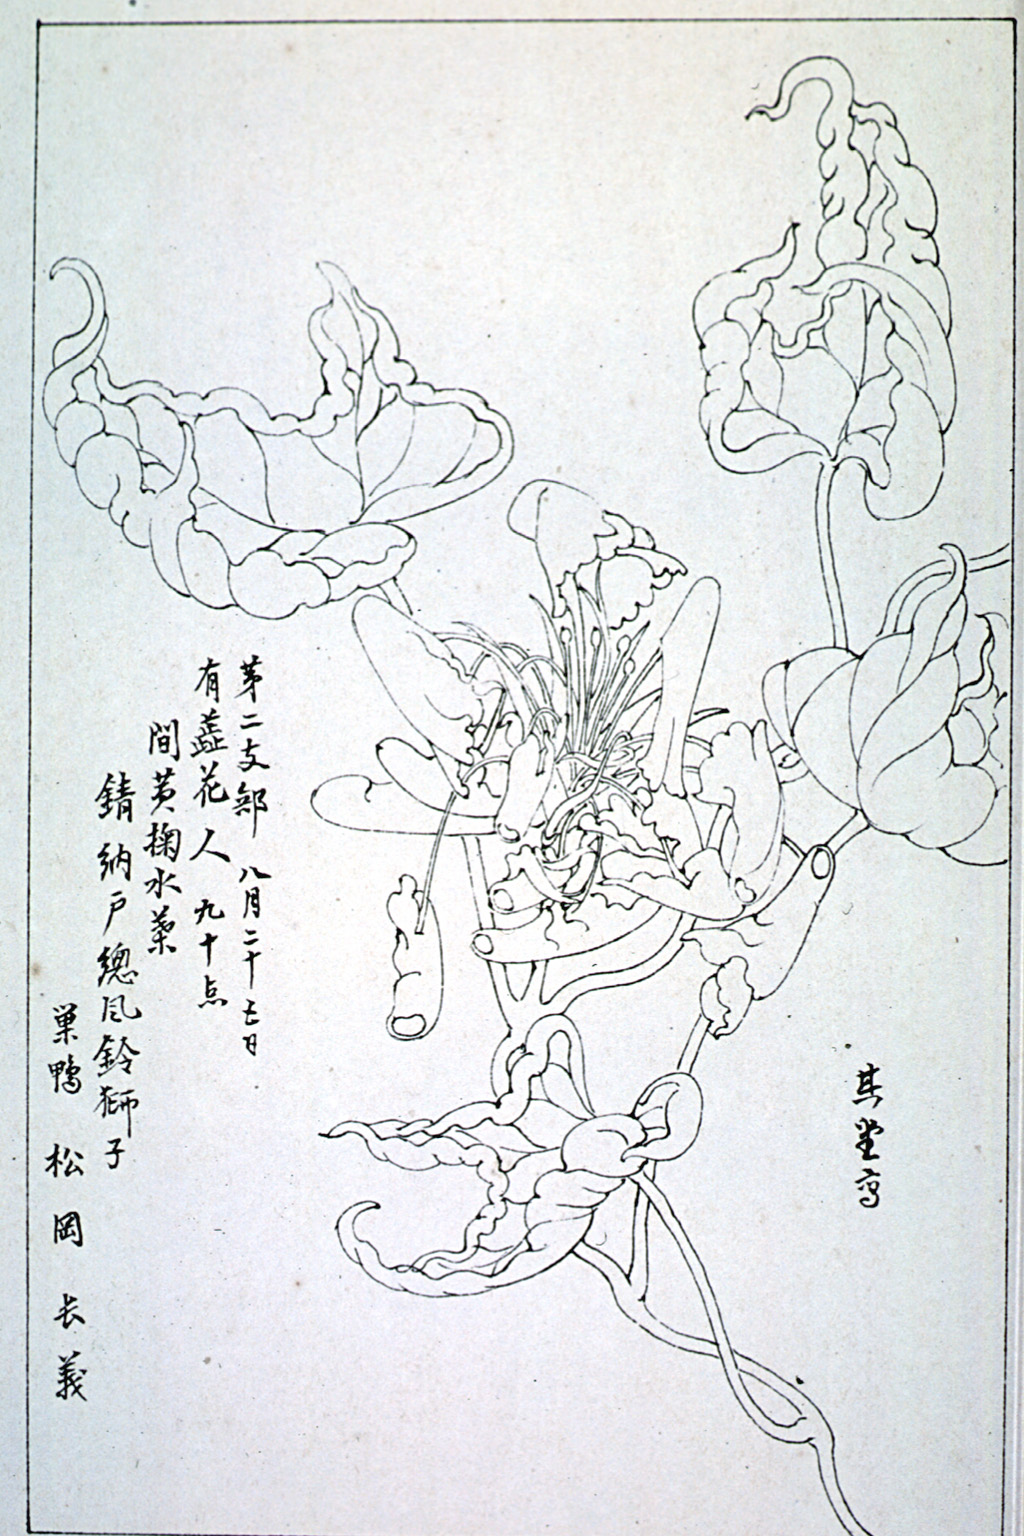 第二支部 八月二十七日
有蕋花人 九十点
間黄掬水葉
錆納戸總風鈴獅子
巣鴨 松岡長義
其堂写